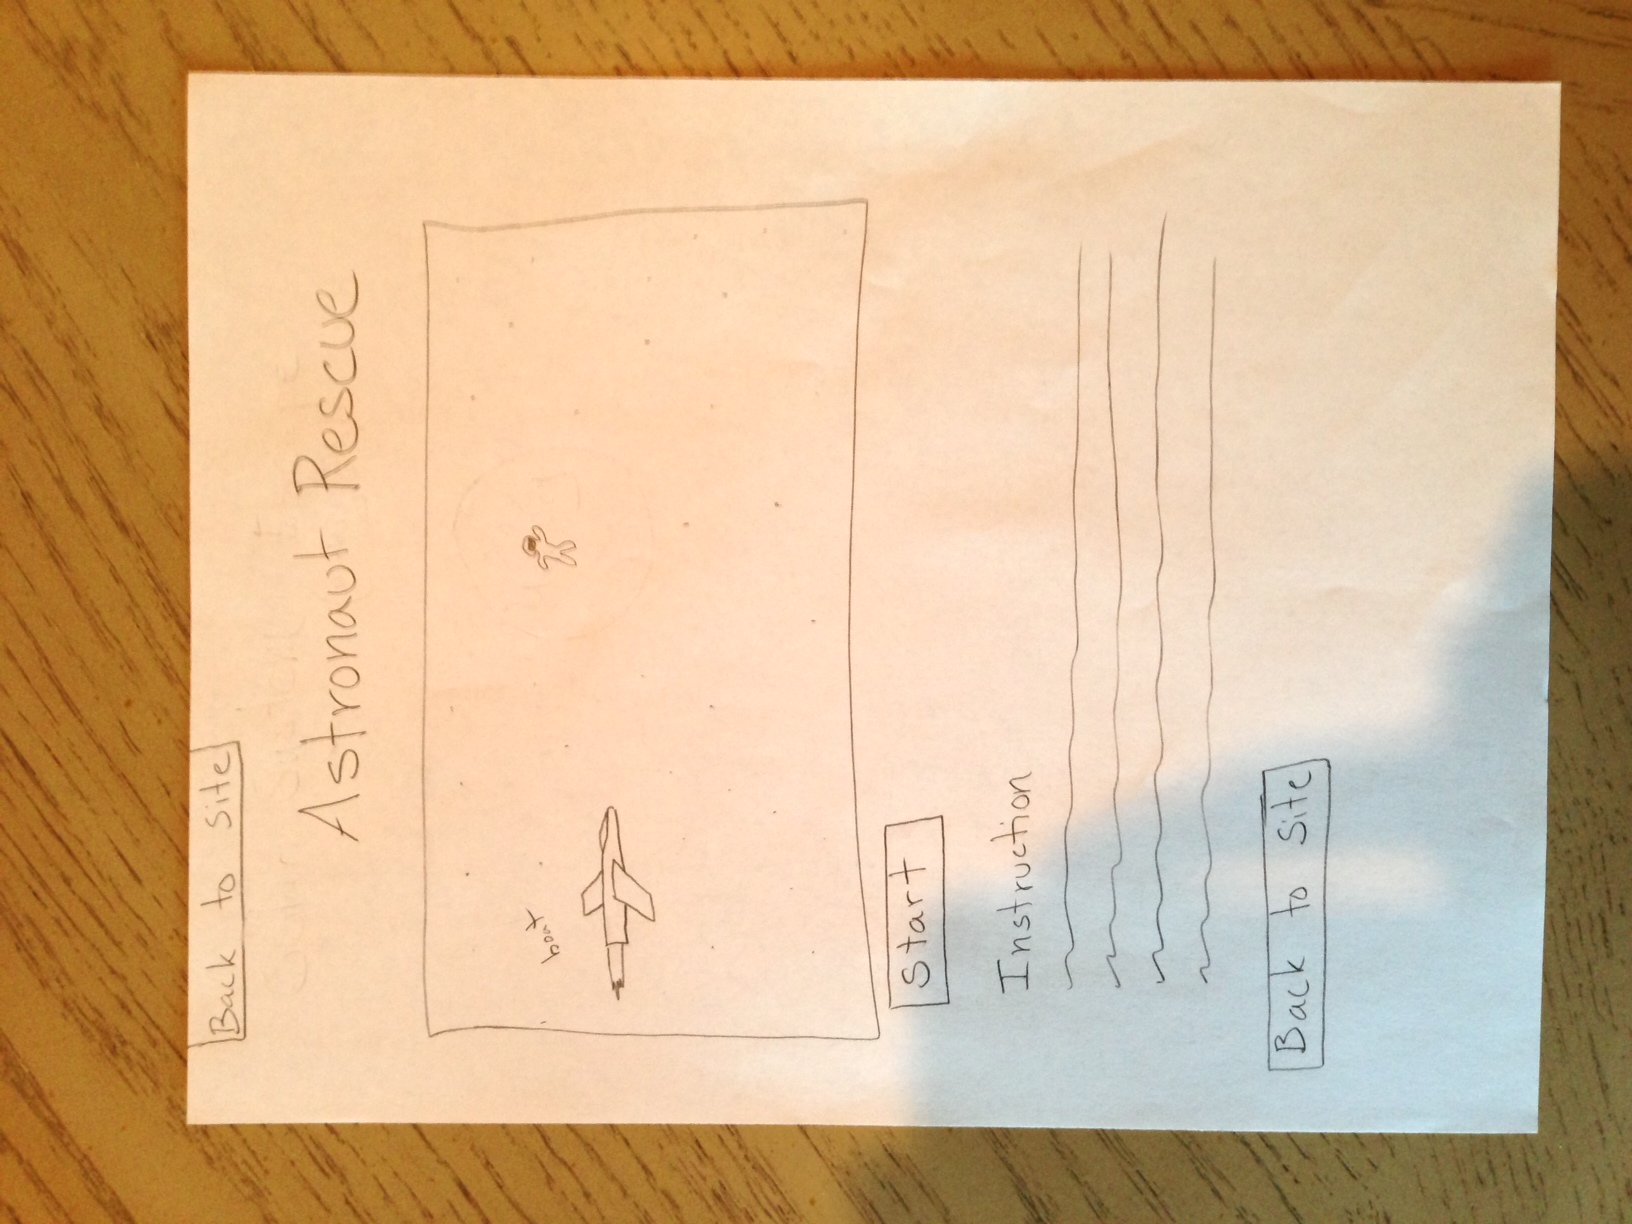 Back to Site
Astronaut Rescue
boat
Start
Instruction
Back to Site